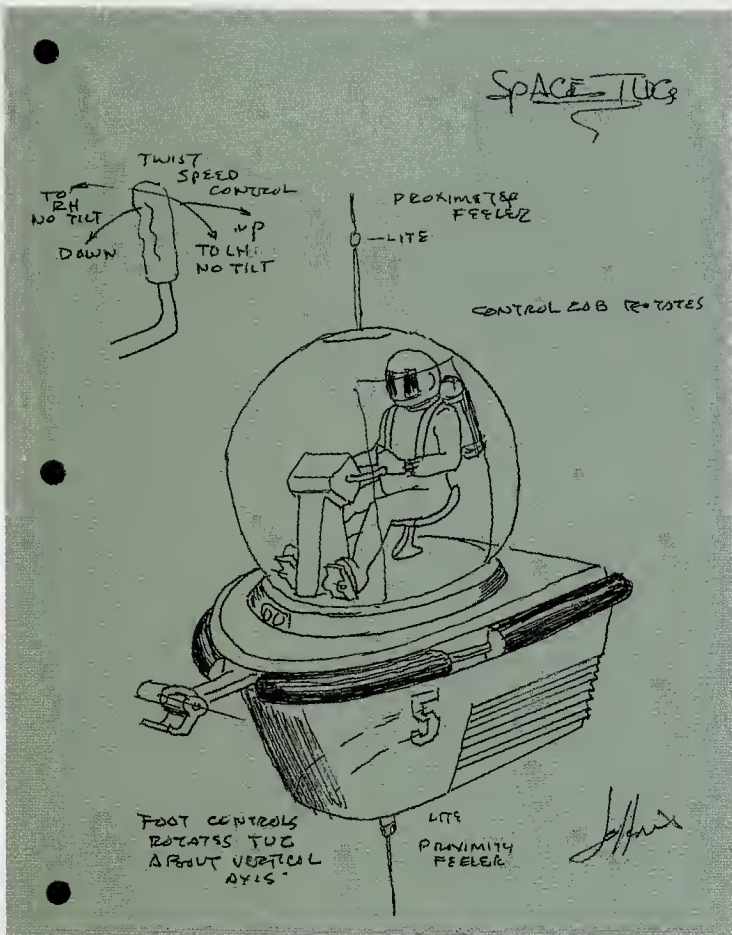 SPACE TUG
TWIST
SPEED
CONTROL
TO
RH
NO TILT
DOWN
UP
TO LH
NO TILT
PROXIMETER
FEELER
LITE
CONTROL CAB ROTATES
5
FOOT CONTROLS
ROTATES TUG
ABOUT VERTICAL
AXIS
LITE
PROXIMITY
FEELER